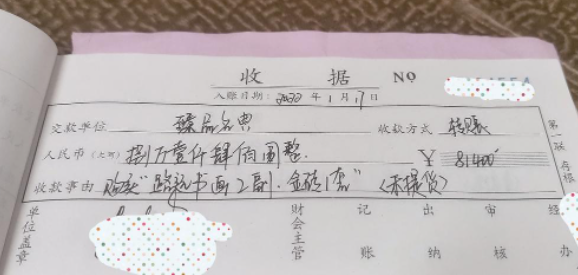 收 据 NO
入账日期：2022年1月17日
交款单位 臻品名典 收款方式 转账
人民币（大写）捌万壹仟肆佰圆整 ￥81400
收款事由 购买"路远书画2副、金砖1套"（未提货）
单位盖章 财会主管 记账 出纳 审核 经办
第一联 存根